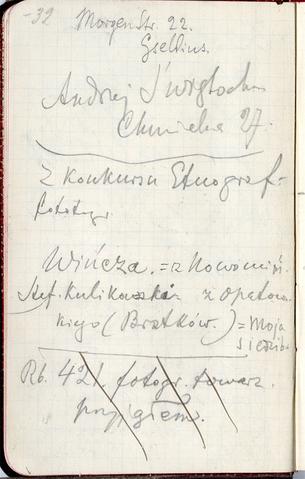 -32 Morgen Str. 22.
Gsellius.
Andrzej
Chmielna 27.
Z Konkursu Etnograf-
fototyp
Wińcza. = z Nowomiń.
Stef. Kulikowskia z Opatow-
kiego (Bratków.) = Moja
siedzib
Rb. 421. fotogr. towarz.
przyjąłem.